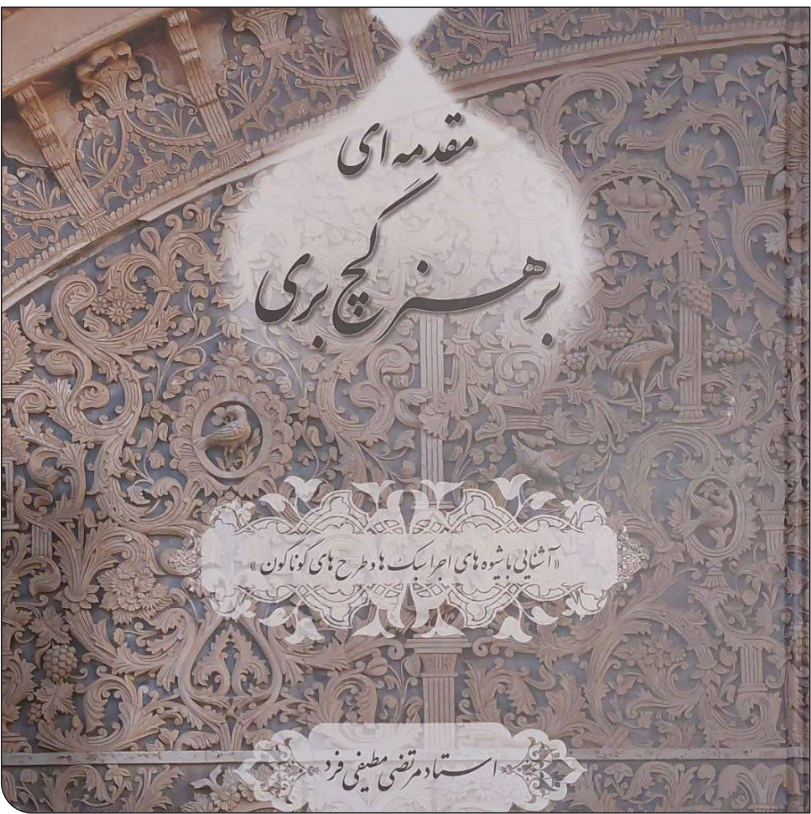 مقدمه ای
بر هنر گچ بری
«آشنایی با شیوه های اجرا سبک ها و طرح های گوناگون»
استاد مرتضی مطیفی فرد